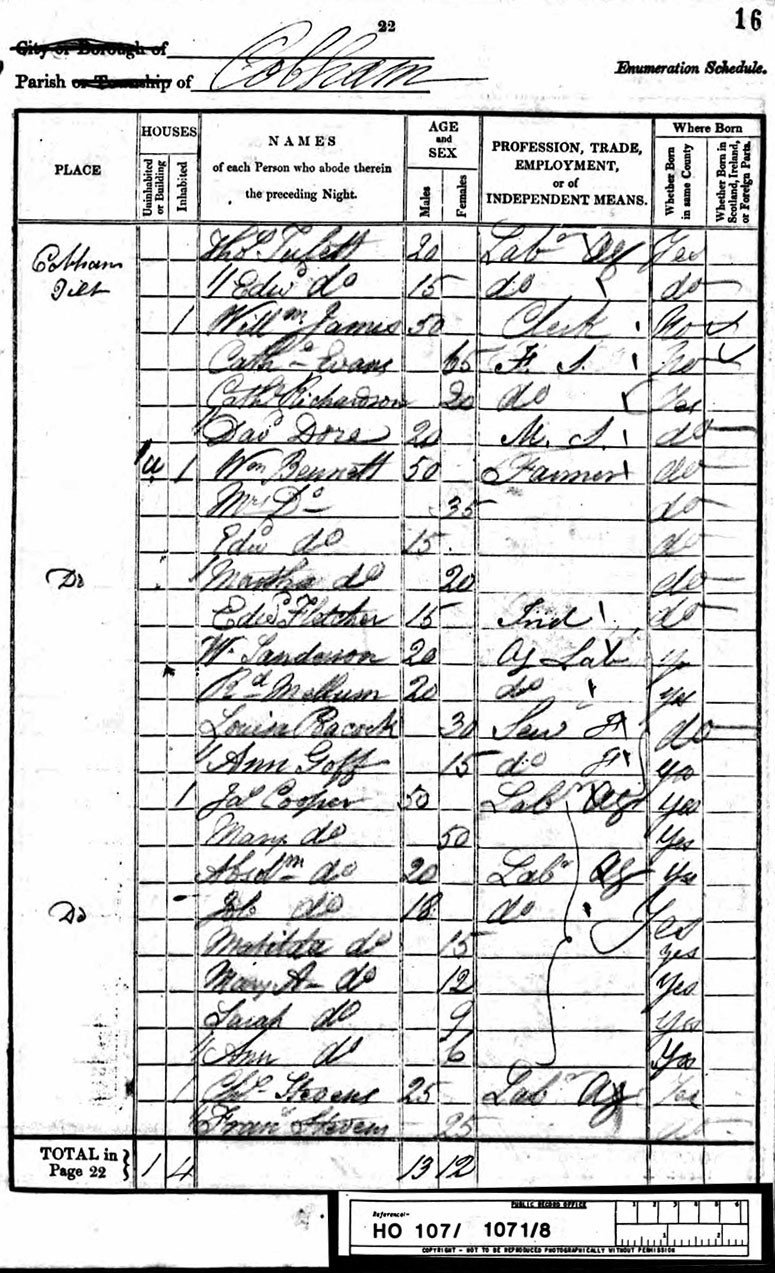 22
16
City or Borough of
Parish or Township of Cobham
Enumeration Schedule.
PLACE
HOUSES
Uninhabited or Building
Inhabited
NAMES
of each Person who abode therein
the preceding Night.
AGE
and
SEX
Males
Females
PROFESSION, TRADE,
EMPLOYMENT,
or of
INDEPENDENT MEANS.
Where Born
Whether Born in same County
Whether Born in Scotland, Ireland, or Foreign Parts.
Cobham Tilt Thos. 20 Labr Ag Yes
Edwd do 15 do do
1 Willm James 50 Clerk No
Cathe Evans 65 F. S. No
Cathe Richardson 20 do Yes
Davd Dore 20 M. S. do
1 u 1 Wm Bennett 50 Farmer do
Mrs Do 35 do
Edwd do 15 do
Do Martha do 20 do
Edwd Fletcher 15 Ind do
Wm Sanderson 20 Ag Lab y
Rd Mellum 20 do yes
Louisa Peacock 30 Serv F do
Ann Goff 15 do F yes
1 Jas Cooper 50 Labr Ag yes
Mary do 50 Yes
do 20 Labr Ag yes
Do Job do 18 do Yes
Matilda do 15 yes
Mary A do 12 Yes
Sarah do 9 Yes
Ann do 6 Yes
1 Chs Stevens 25 Labr Ag Yes
Frans Stevens 25 do
TOTAL in Page 22 } 1 4 13 12
PUBLIC RECORD OFFICE
Reference:-
HO 107/ 1071/8
1 2 3 4 5 6
1 2
COPYRIGHT - NOT TO BE REPRODUCED PHOTOGRAPHICALLY WITHOUT PERMISSION